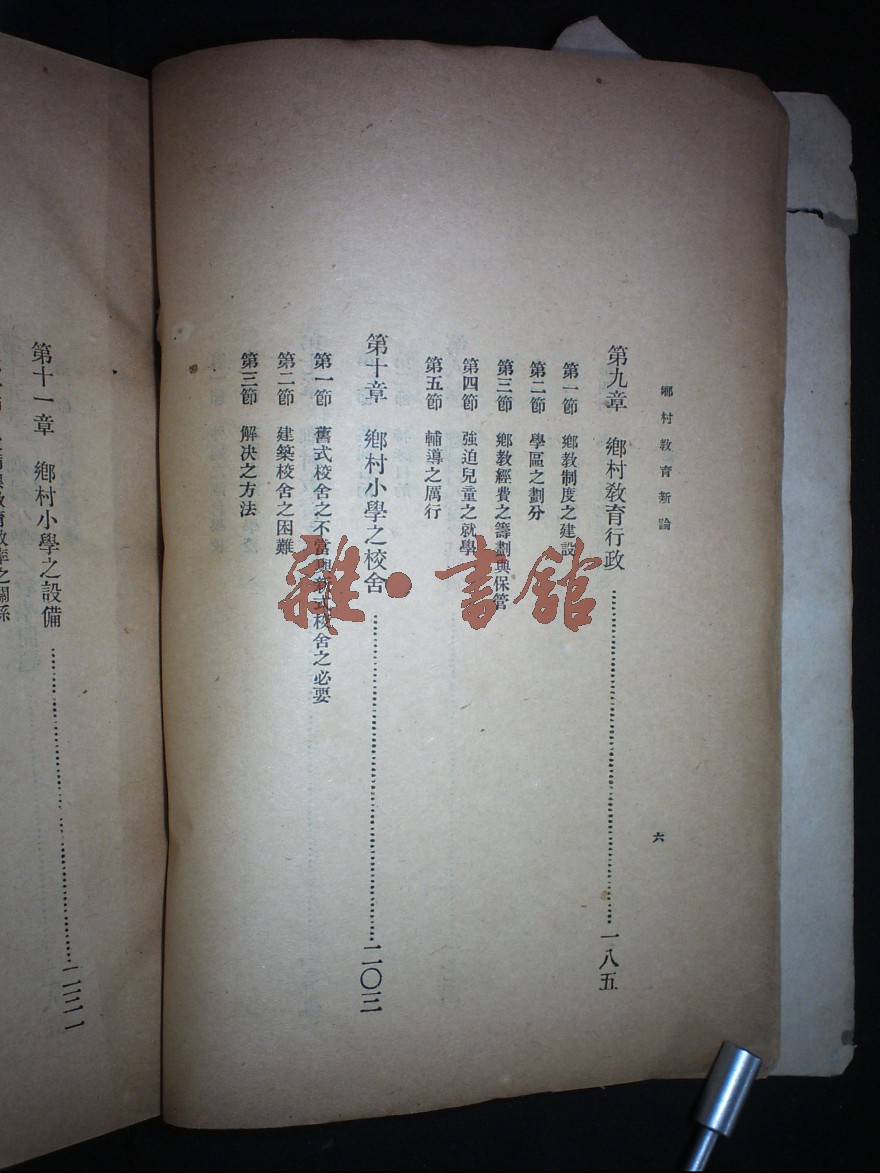 鄉村教育新論
六
第九章 鄉村教育行政……一八五
第一節 鄉教制度之建設
第二節 學區之劃分
第三節 鄉教經費之籌劃與保管
第四節 強迫兒童之就學
第五節 輔導之厲行
第十章 鄉村小學之校舍……二〇三
第一節 舊式校舍之不當與新式校舍之必要
第二節 建築校舍之困難
第三節 解决之方法
第十一章 鄉村小學之設備……二三一
教育效率之關係
雜·書館